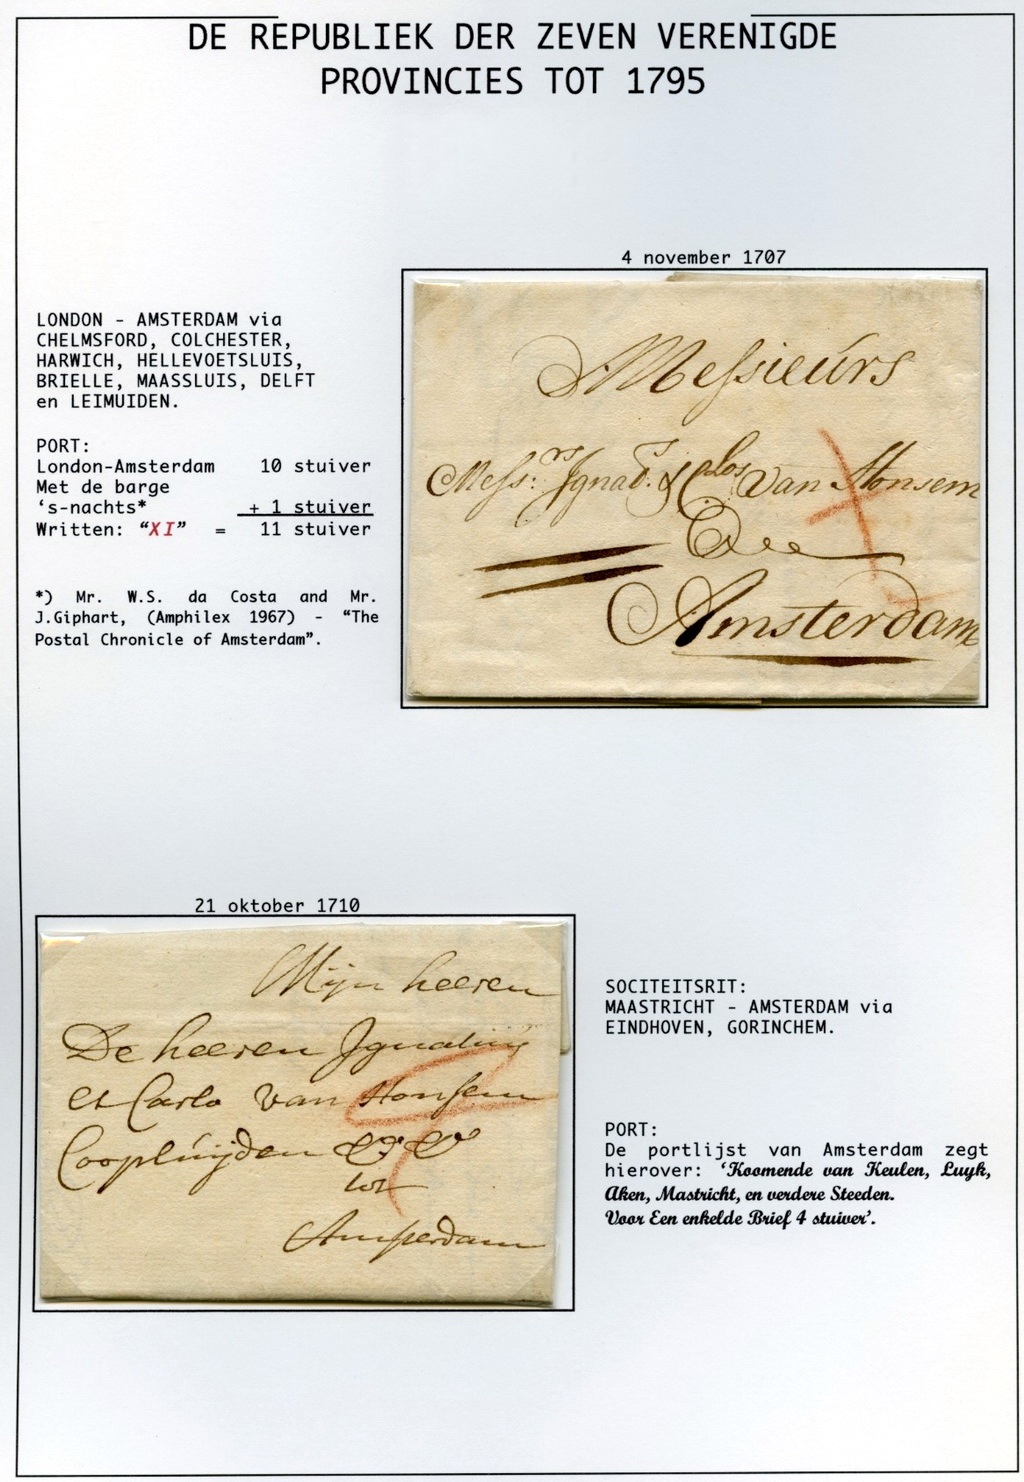 DE REPUBLIEK DER ZEVEN VERENIGDE
PROVINCIES TOT 1795
4 november 1707
LONDON - AMSTERDAM via
CHELMSFORD, COLCHESTER,
HARWICH, HELLEVOETSLUIS,
BRIELLE, MAASSLUIS, DELFT
en LEIMUIDEN.
PORT:
London-Amsterdam 10 stuiver
Met de barge
‘s-nachts* + 1 stuiver
Written: “XI” = 11 stuiver
*) Mr. W.S. da Costa and Mr.
J.Giphart, (Amphilex 1967) - “The
Postal Chronicle of Amsterdam”.
Messieurs
Messrs. Ignat. & Calos van Honsem
Amsterdam
21 oktober 1710
Mijn heeren
De heeren Ignatius
et Carlo van Honsem
Coopluijden
tot
Amsterdam
SOCITEITSRIT:
MAASTRICHT - AMSTERDAM via
EINDHOVEN, GORINCHEM.
PORT:
De portlijst van Amsterdam zegt
hierover: ‘Koomende van Keulen, Luyk,
Aken, Mastricht, en verdere Steeden.
Voor Een enkelde Brief 4 stuiver’.